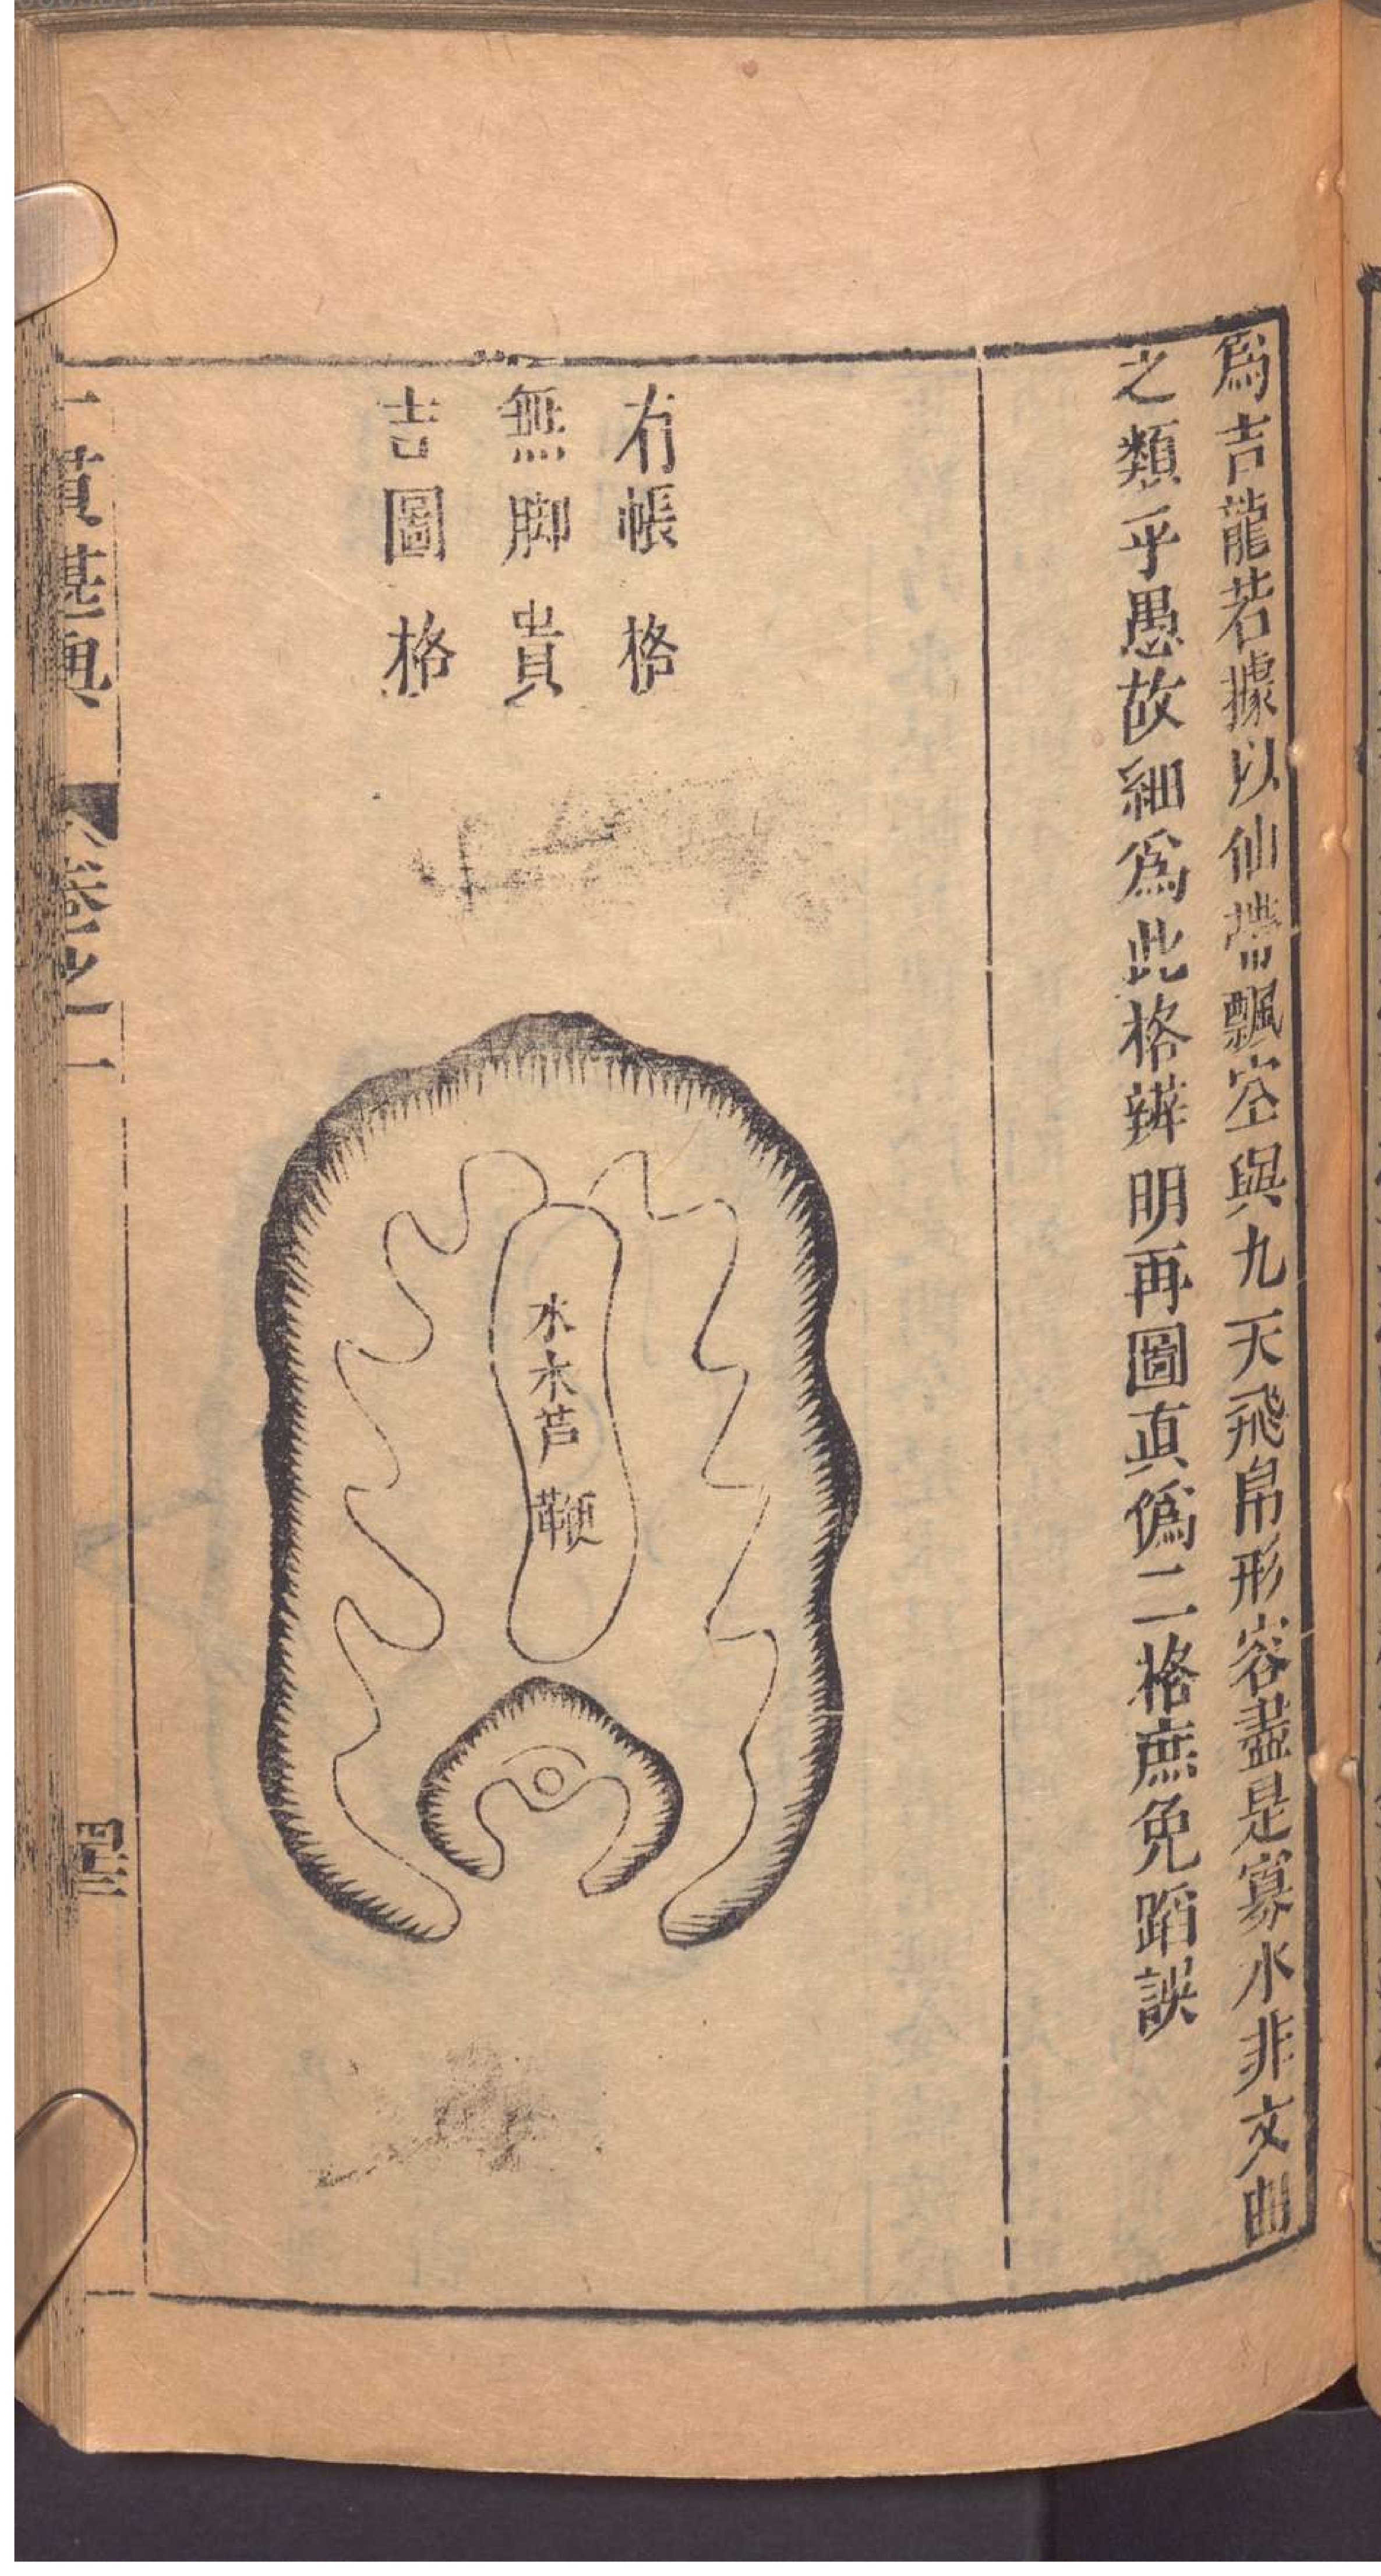 為吉龍若據以仙帶飄空與九天飛帛形容盡是寡水非文曲
之類乎愚故細為此格辨明再圖真偽二格庶免蹈誤
有帳格
無脚貴
吉圖格
水木芦鞭
一貫堪輿
卷之一